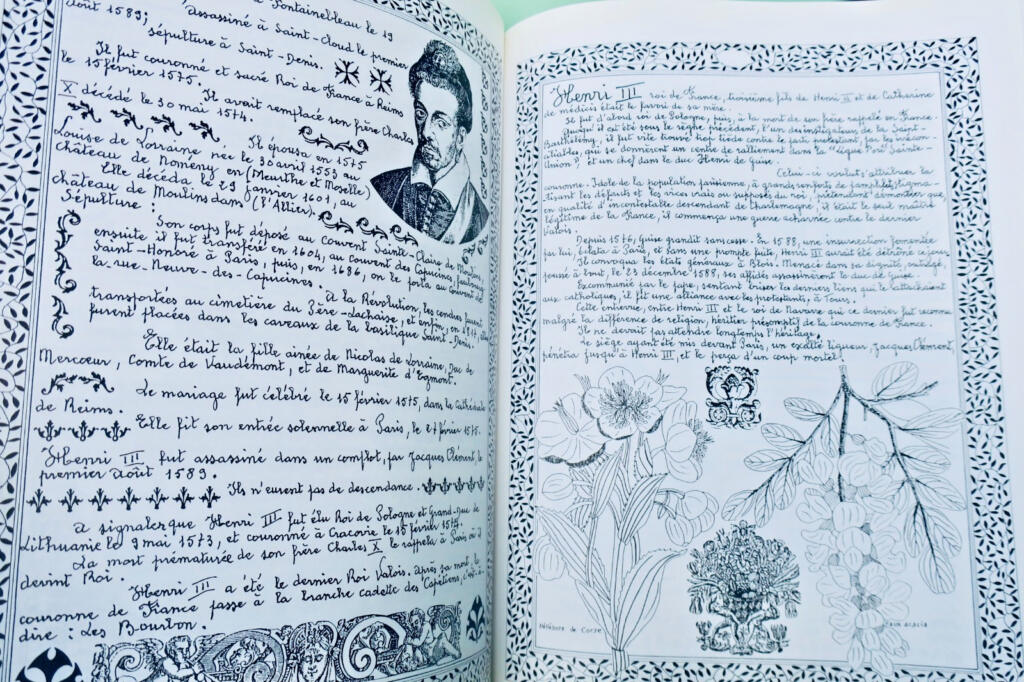 à Fontainebleau le 19
assassiné à Saint-Cloud le premier
août 1589;
sépulture à Saint-Denis.
Il fut couronné et sacré Roi de France à Reims
le 15 février 1575. Il avait remplacé son père Charles
X décédé le 30 mai 1574.
Il épousa en 1575
Louise de Lorraine née le 30 avril 1553 au
château de Nomeny en (Meurthe et Moselle)
Elle décéda le 29 janvier 1601, au
château de Moulins dans (l'Allier).
Sépulture :
Son corps fut déposé au Couvent Sainte-Claire de Moulins,
ensuite il fut transféré en 1604, au Couvent des Capucines, faubourg
Saint-Honoré à Paris, puis, en 1686, on le porta au Couvent de
la-rue-Neuve-des-Capucines.
À la Révolution, les cendres furent
transportées au cimetière du Père-Lachaise, et enfin, en 1817, elles
furent placées dans les caveaux de la basilique Saint-Denis.
Elle était la fille ainée de Nicolas de Lorraine, Duc de
Mercœur, Comte de Vaudémont, et de Marguerite d'Egmont.
Le mariage fut célébré le 15 février 1575, dans la Cathédrale
de Reims.
Elle fit son entrée solennelle à Paris, le 27 février 1575.
Henri III fut assassiné dans un complot, par Jacques Clément, le
premier août 1589.
Ils n'eurent pas de descendance.
à signaler que Henri III fut élu Roi de Pologne et Grand-Duc de
Lithuanie le 9 mai 1573, et couronné à Cracovie le 15 février 1574.
La mort prématurée de son frère Charles X le rappela à Paris où il
devint Roi.
Henri III a été le dernier Roi Valois. Après sa mort, la
couronne de France passe à la branche cadette des Capétiens, c'est-à-
dire : Les Bourbon.
Henri III roi de France, troisième fils de Henri II et de Catherine
de médicis était le favori de sa mère.
Il fut d'abord roi de Pologne, puis, à la mort de son frère rappelé en France.
Quoiqu'il eût été sous le règne précédent, l'un des instigateurs de la Saint-
Barthélemy, il fut vite trouvé trop tiède contre le parti protestant, par les
qui se donnèrent un centre de ralliement dans la "Ligue" ou "Sainte-
Union", et un chef dans le duc Henri de Guise.
Celui-ci voulut s'attribuer la
couronne. Idole de la population parisienne, à grands renforts de pamphlets, stigma-
tisant les défauts et les vices vrais ou supposés du roi,
en qualité d'incontestable descendant de Charlemagne, il était le seul maître
légitime de la France, il commença une guerre acharnée contre le dernier
Valois.
Depuis 1576, Guise grandit sans cesse. En 1588, une insurrection fomentée
par lui, éclata à Paris, et sans une prompte fuite, Henri III aurait été détrôné ce jour.
Il convoqua les états généraux à Blois. Menacé dans sa dignité, outragé,
poussé à bout, le 23 décembre 1588, ses affidés assassinèrent le duc de Guise.
Excommunié par le pape, sentant briser les derniers liens qui le rattachaient
aux catholiques, il fit une alliance avec les protestants, à Tours.
Cette entrevue, entre Henri III et le roi de Navarre qui ce dernier fut reconnu
malgré la différence de religion, héritier présomptif de la couronne de France.
Il ne devrait pas attendre longtemps l'héritage.
Le siège ayant été mis devant Paris, un exalté ligueur, Jacques Clément,
pénétra jusqu'à Henri III, et le perça d'un coup mortel!
Héllébore de Corse
acacia